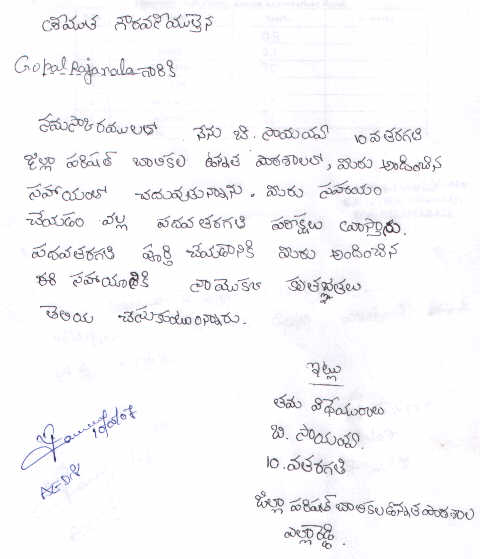 శ్రీయుత గౌరవనీయులైన
Gopal Rajanala గారికి
నమస్కారములతో నేను బి. సాయమ్మ 10వ తరగతి
జిల్లా పరిషత్ బాలికల ఉన్నత పాఠశాలలో, మీరు అందించిన
సహాయంతో చదువుతున్నాను. మీరు సహాయం
చేయడం వల్ల పదవ తరగతి పరీక్షలు వ్రాస్తాను.
పదవ తరగతి పూర్తి చేయడానికి మీరు అందించిన
ఈ సహాయానికి నా మొకటి కృతజ్ఞతలు
తెలియ చేసుకుంటున్నాను.
ఇట్లు
తమ విధేయురాలు
బి. సాయమ్మ
10. వ తరగతి
జిల్లా పరిషత్ బాలికల ఉన్నత పాఠశాల
ఎల్లారెడ్డి.